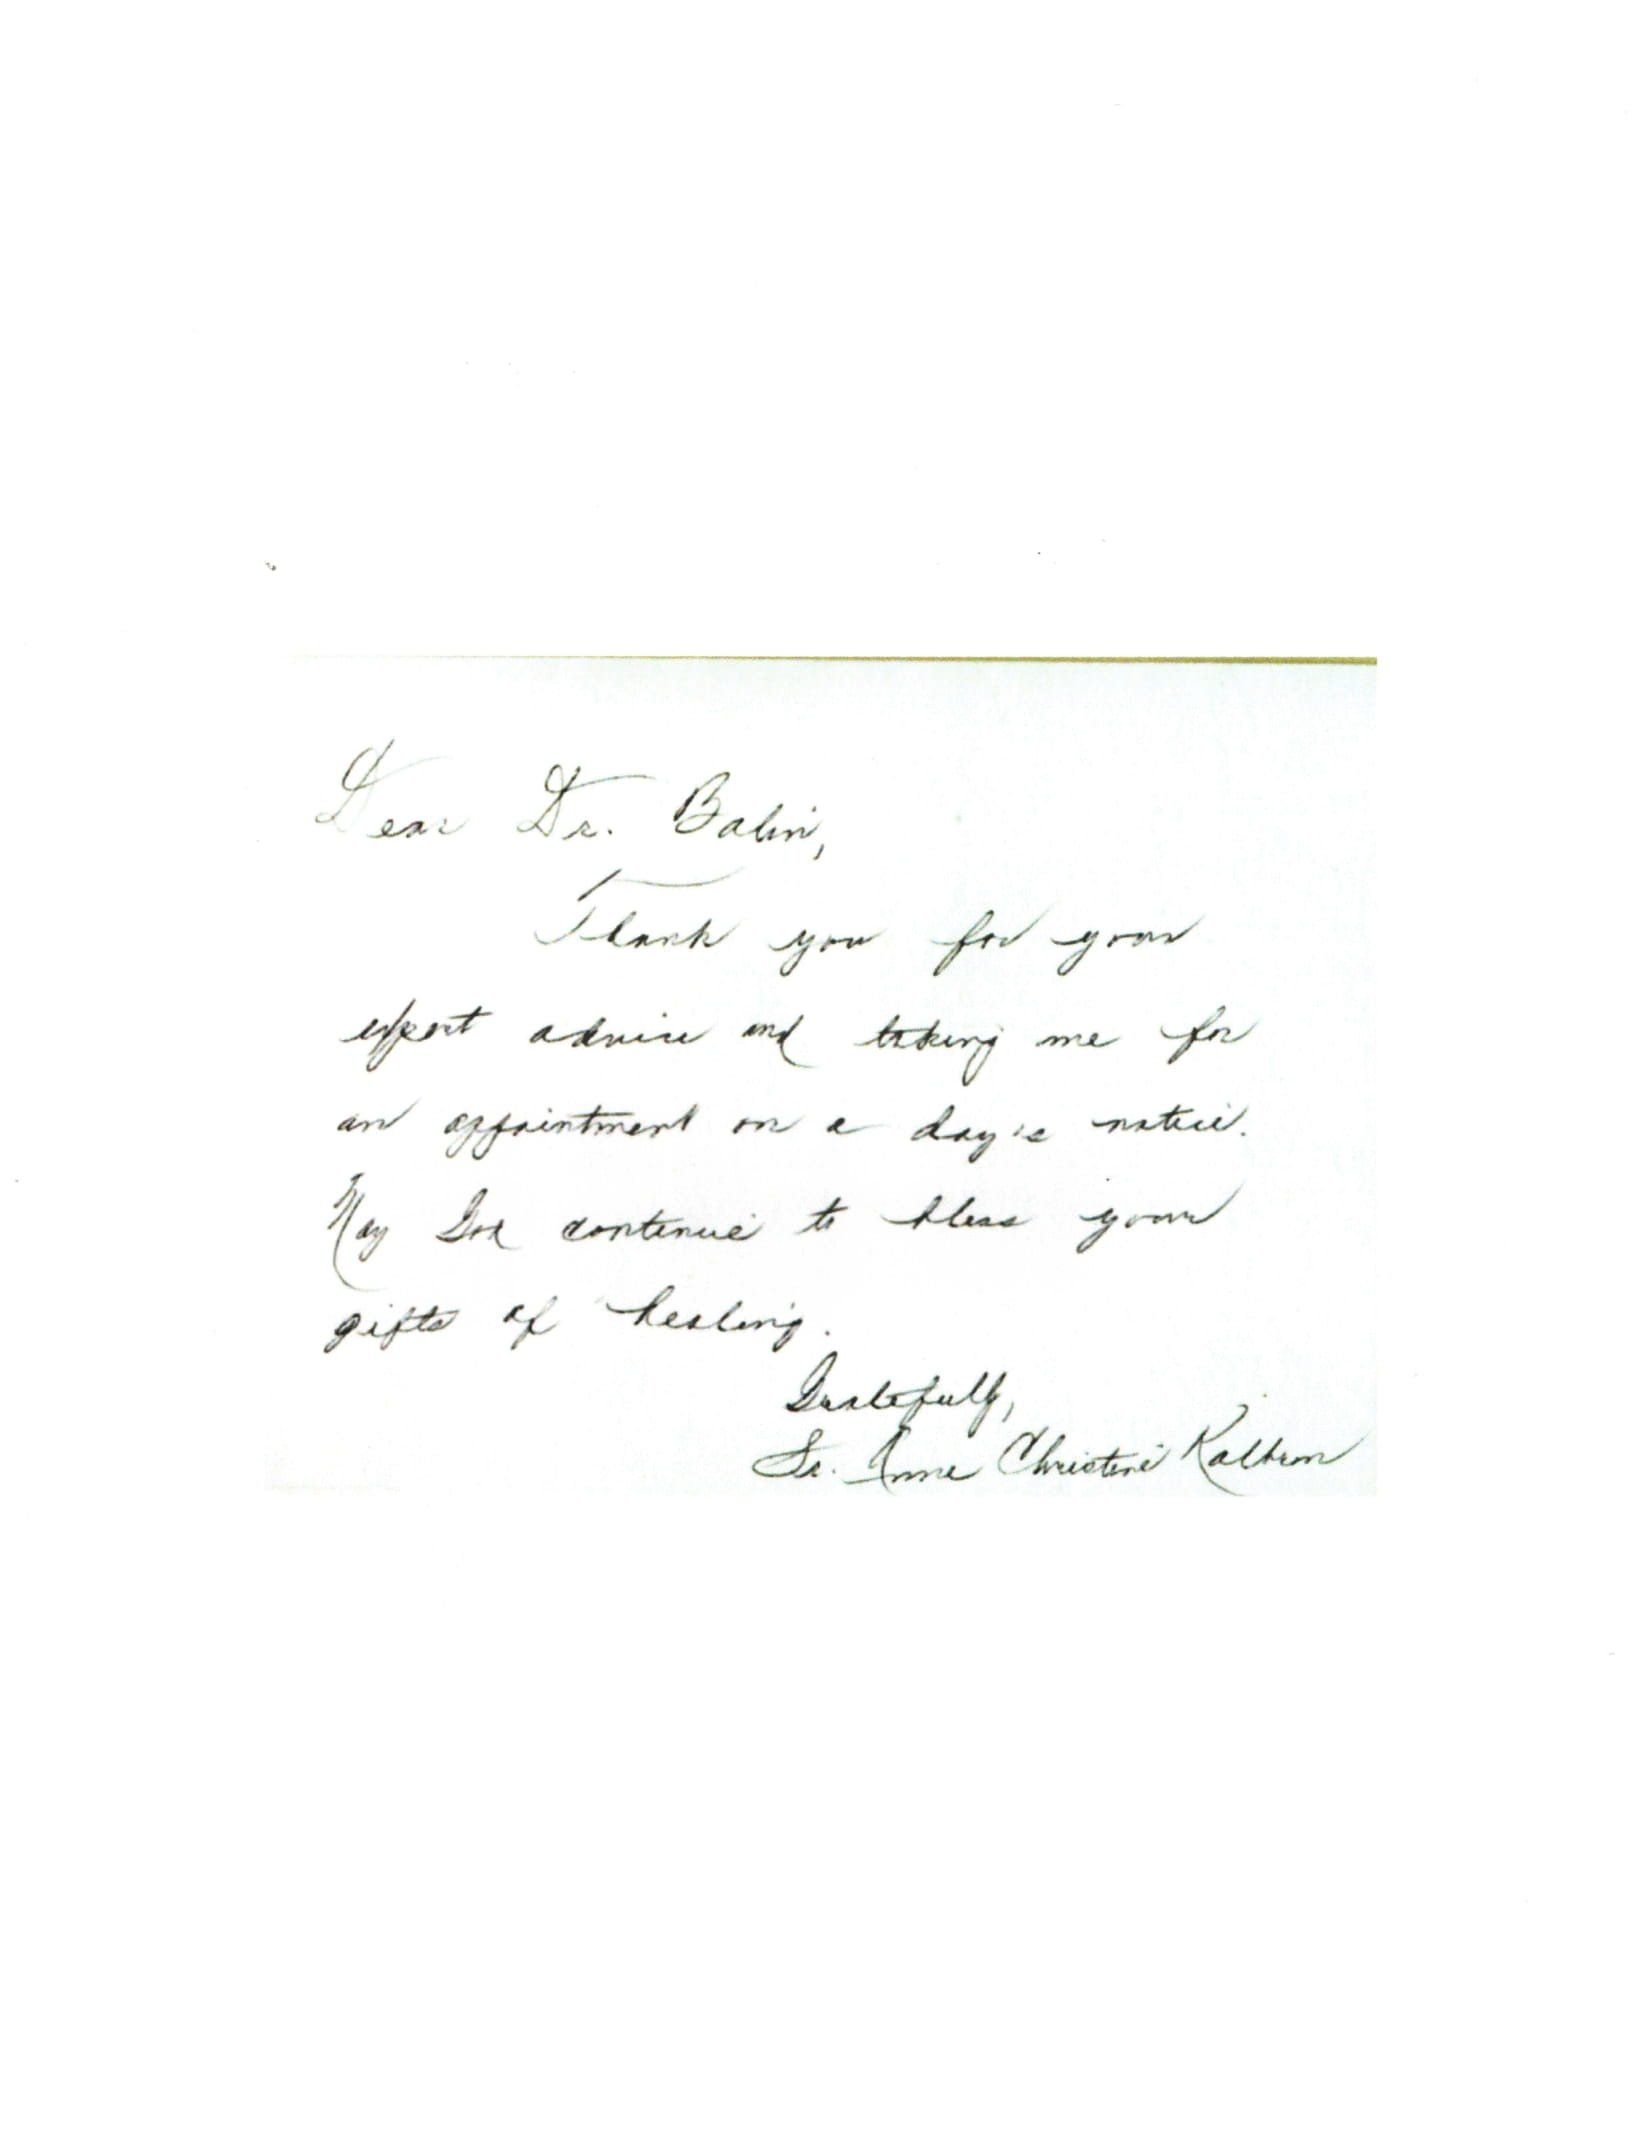 Dear Dr. Balin,
Thank you for your
expert advice and taking me for
an appointment on a day's notice.
May God continue to bless your
gifts of healing.
Gratefully,
Sr. Anne Christine